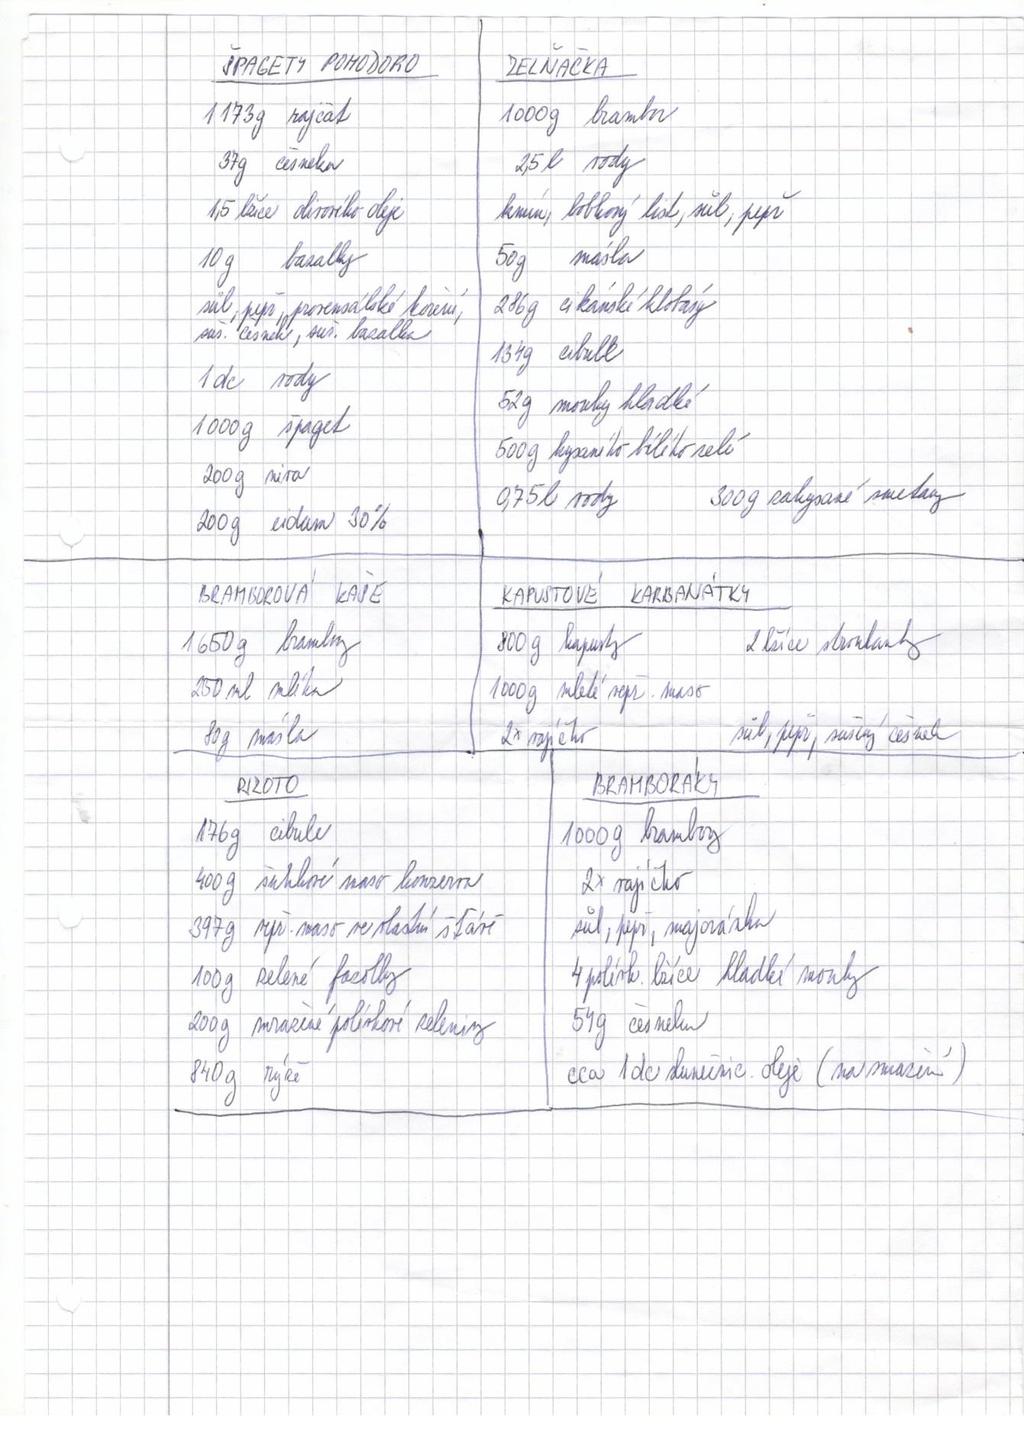 ŠPAGETY POMODORO
1173g rajčat
37g česneku
1,5 lžíce olivového oleje
10g bazalky
sůl, pepř, provensálské koření,
suš. česnek, suš. bazalka
1dc vody
1000g špaget
200g niva
200g eidam 30%
ZELŇAČKA
1000g brambor
2,5l vody
kmín, bobkový list, sůl, pepř
50g másla
286g cikánské klobásy
134g cibule
52g mouky hladké
500g kysaného bílého zelí
0,75l vody 300g zakysané smetany
BRAMBOROVÁ KAŠE
1650g brambory
250ml mléka
80g másla
KAPUSTOVÉ KARBANÁTKY
800g kapusty 2 lžíce strouhanky
1000g mleté vepř. maso
2x vajíčko sůl, pepř, sušený česnek
RIZOTO
176g cibule
400g šunkové maso konzerva
397g vepř. maso ve vlastní šťávě
100g zelené fazolky
200g mražené polévkové zeleniny
840g rýže
BRAMBORÁKY
1000g brambory
2x vajíčko
sůl, pepř, majoránka
4 polévk. lžíce hladké mouky
54g česneku
cca 1dc slunečnic. oleje (na smažení)